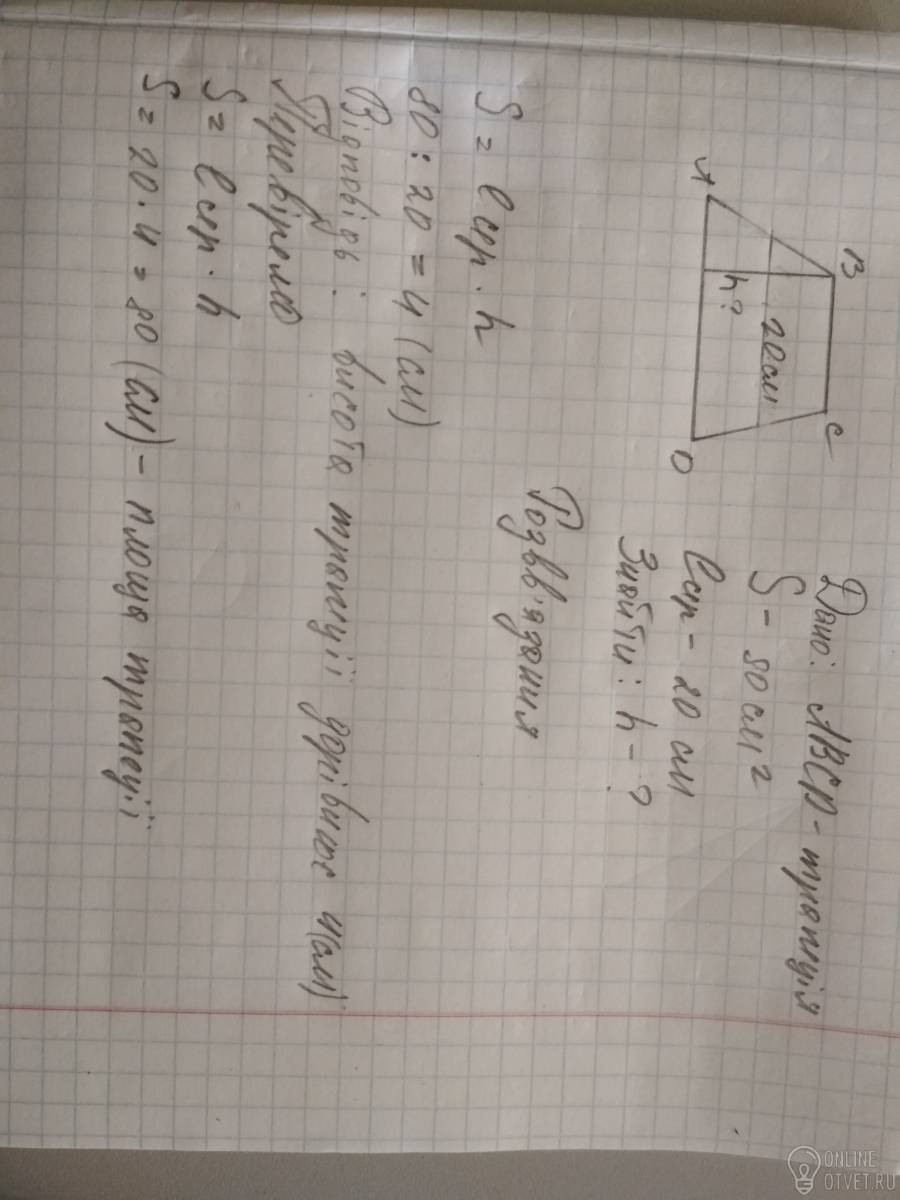 Дано: ABCD - трапеція
S - 80 см²
lср - 20 см
Знайти: h - ?
B
C
A
D
h?
20 см
Розвв'язання
S = lср · h
80 : 20 = 4 (см)
Відповідь: висота трапеції дорівнює 4(см)
Перевіремо
S = lср · h
S = 20 · 4 = 80 (см) - площа трапеції
ONLINE
OTVET.RU